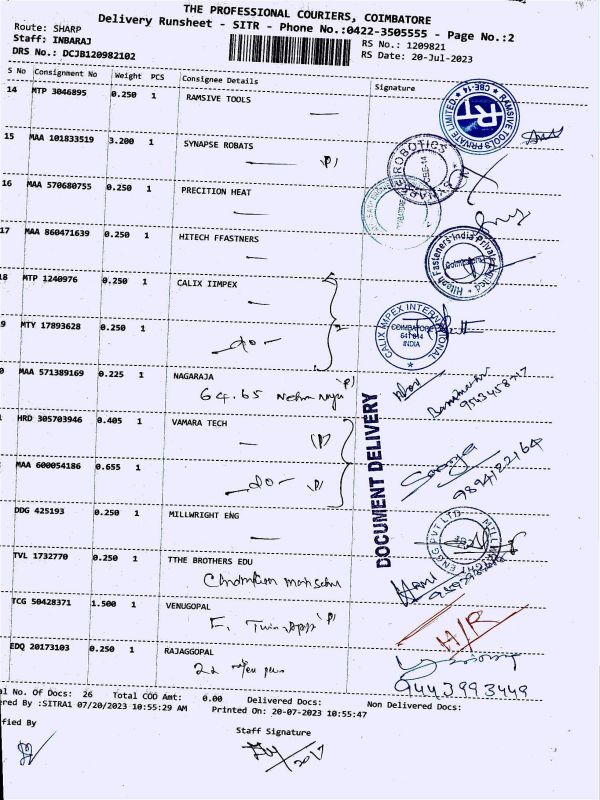 THE PROFESSIONAL COURIERS, COIMBATORE
Delivery Runsheet - SITR - Phone No.:0422-3505555 - Page No.:2
Route: SHARP
Staff: INBARAJ
DRS No.: DCJB120982102
RS No.: 1209821
RS Date: 20-Jul-2023
S No Consignment No Weight PCS Consignee Details Signature
14 MTP 3046895 0.250 1 RAMSIVE TOOLS
RAMSIVE TOOLS PRIVATE LIMITED CBE-14
15 MAA 101833519 3.200 1 SYNAPSE ROBATS
16 MAA 570680755 0.250 1 PRECITION HEAT
17 MAA 860471639 0.250 1 HITECH FFASTNERS
Hitech Fasteners India Private Limited Coimbatore
8 MTP 1240976 0.250 1 CALIX IIMPEX
CALIX IMPEX INTERNATIONAL
COIMBATORE
641 014
INDIA
9 MTY 17893628 0.250 1
do
0 MAA 571389169 0.225 1 NAGARAJA
64.65
HRD 305703946 0.405 1 VAMARA TECH
MAA 600054186 0.655 1
do
9894182164
DOCUMENT DELIVERY
DDG 425193 0.250 1 MILLWRIGHT ENG
TVL 1732770 0.250 1 TTHE BROTHERS EDU
TCG 50428371 1.500 1 VENUGOPAL
H/R
EDQ 20173103 0.250 1 RAJAGGOPAL
22
9443993449
al No. Of Docs: 26 Total COD Amt: 0.00 Delivered Docs: Non Delivered Docs:
ered By :SITRA1 07/20/2023 10:55:29 AM Printed On: 20-07-2023 10:55:47
ified By
Staff Signature